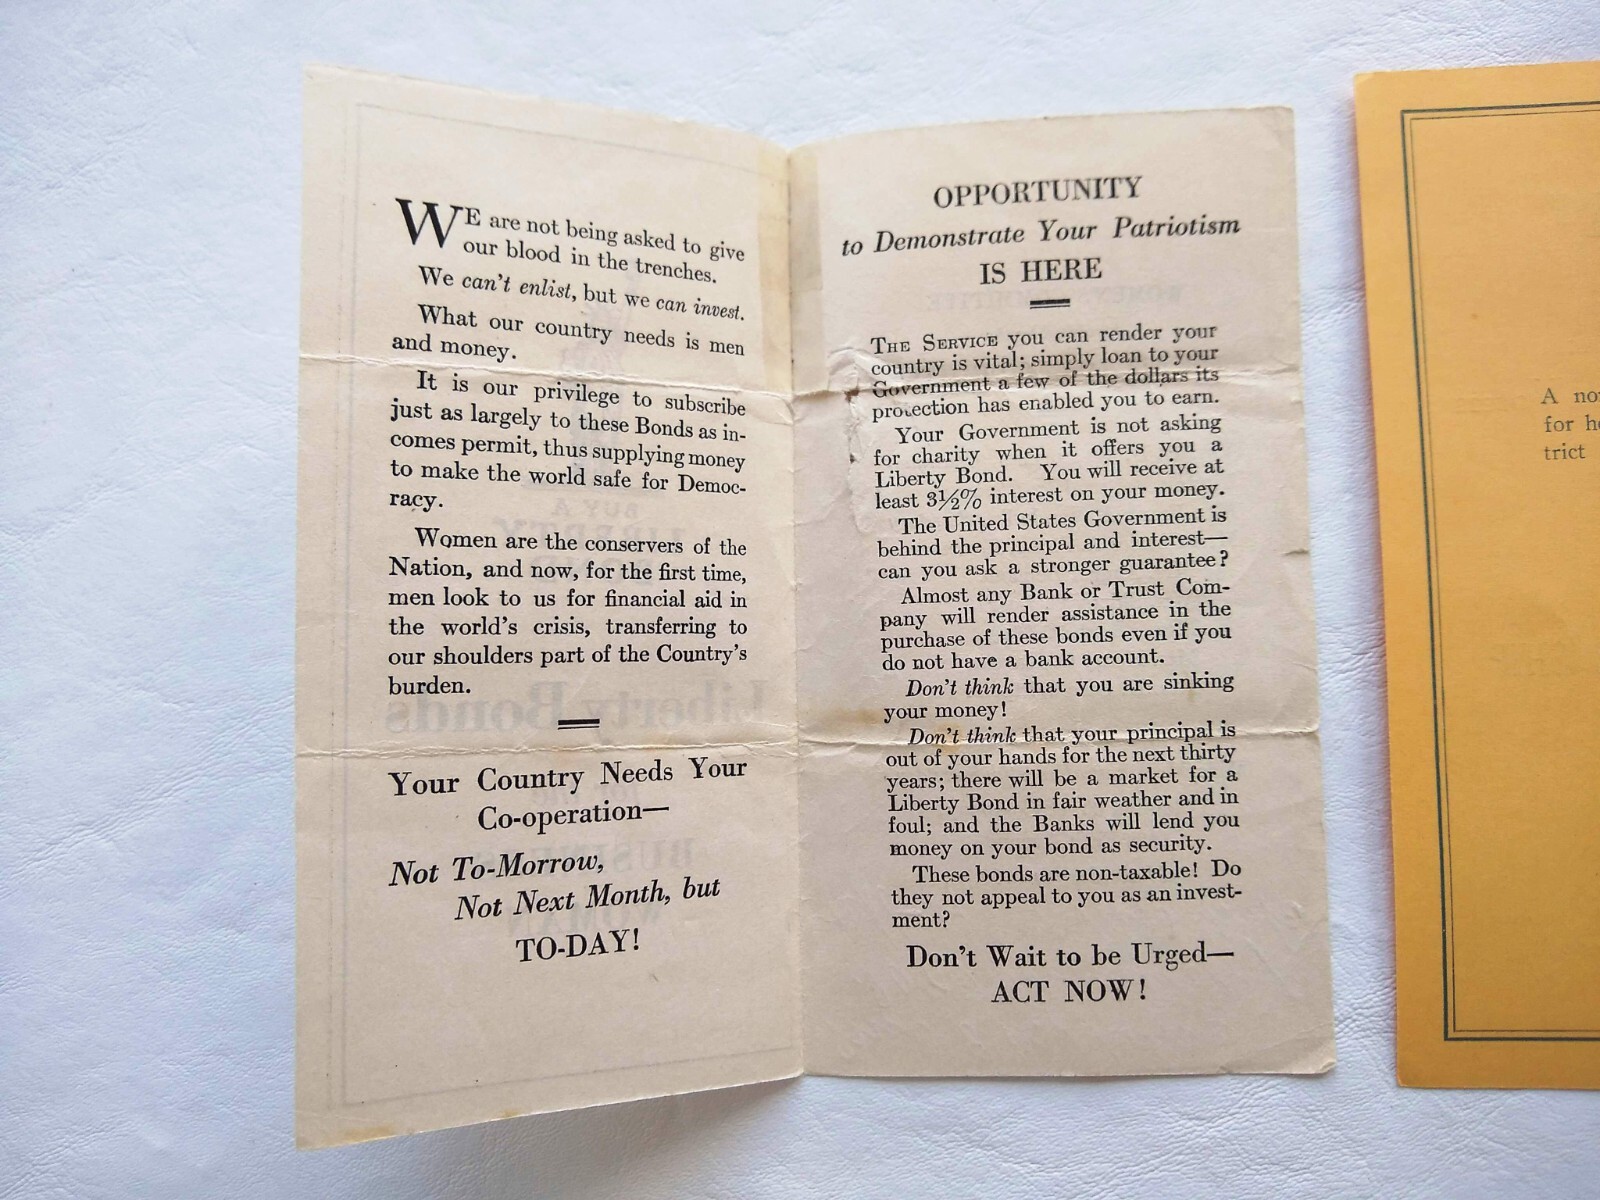 WE are not being asked to give
our blood in the trenches.
We can't enlist, but we can invest.
What our country needs is men
and money.
It is our privilege to subscribe
just as largely to these Bonds as in-
comes permit, thus supplying money
to make the world safe for Democ-
racy.
Women are the conservers of the
Nation, and now, for the first time,
men look to us for financial aid in
the world's crisis, transferring to
our shoulders part of the Country's
burden.
Your Country Needs Your
Co-operation—
Not To-Morrow,
Not Next Month, but
TO-DAY!
OPPORTUNITY
to Demonstrate Your Patriotism
IS HERE
THE SERVICE you can render your
country is vital; simply loan to your
Government a few of the dollars its
protection has enabled you to earn.
Your Government is not asking
for charity when it offers you a
Liberty Bond. You will receive at
least 3½% interest on your money.
The United States Government is
behind the principal and interest—
can you ask a stronger guarantee?
Almost any Bank or Trust Com-
pany will render assistance in the
purchase of these bonds even if you
do not have a bank account.
Don't think that you are sinking
your money!
Don't think that your principal is
out of your hands for the next thirty
years; there will be a market for a
Liberty Bond in fair weather and in
foul; and the Banks will lend you
money on your bond as security.
These bonds are non-taxable! Do
they not appeal to you as an invest-
ment?
Don't Wait to be Urged—
ACT NOW!
A
for
trict